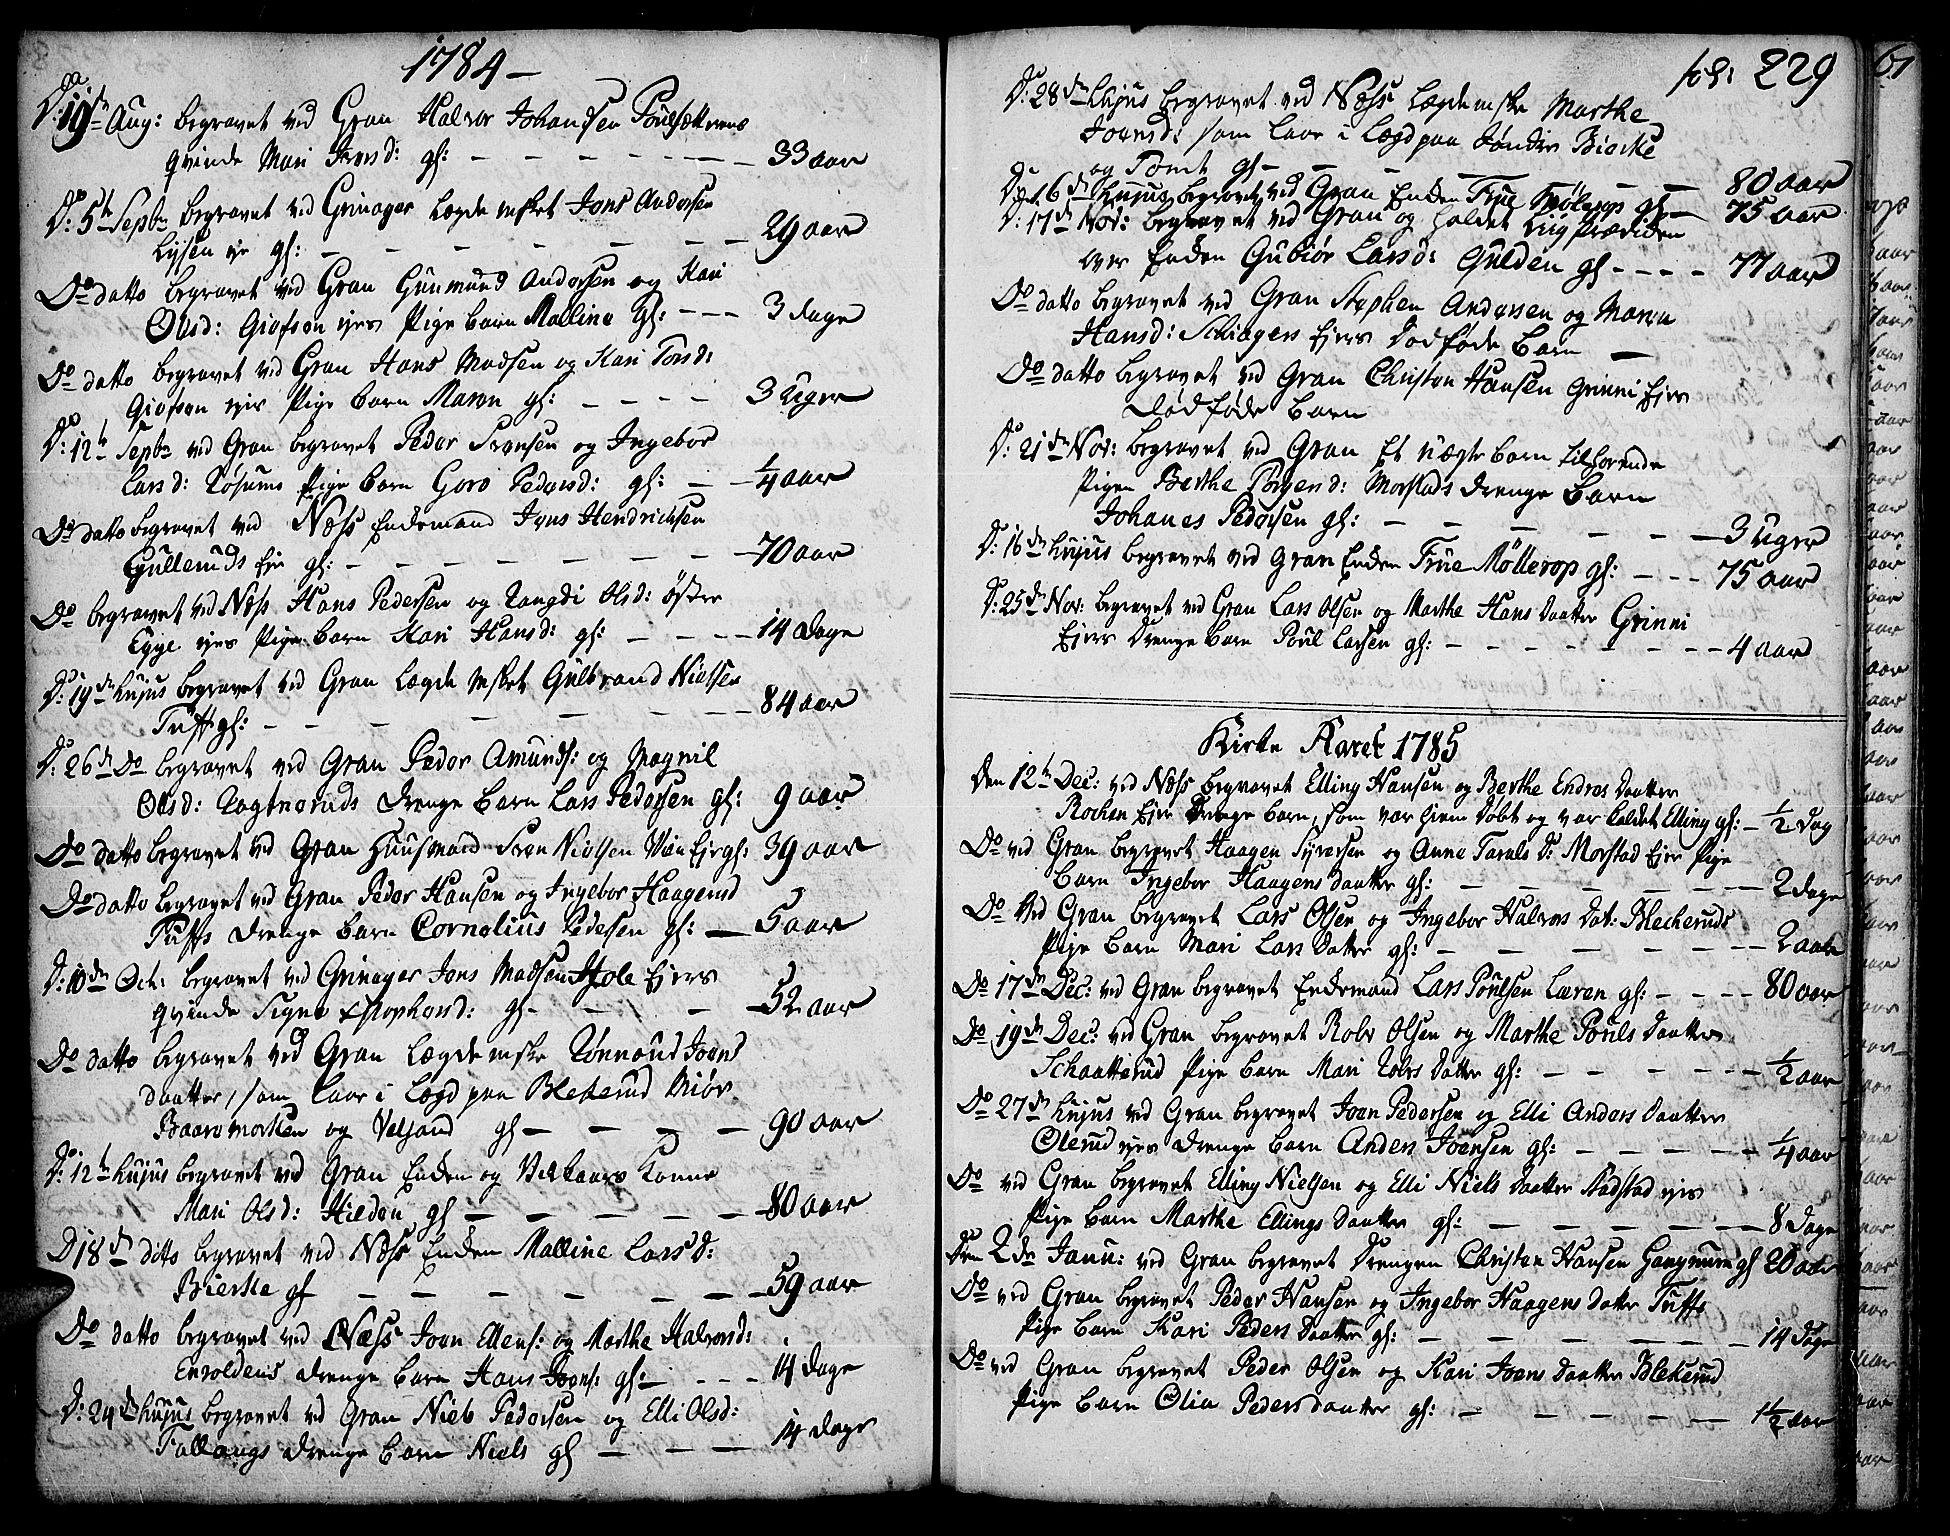 1784 –
D: 19de Aug: begravet ved Gran Halvor Johansen Poulsættrens
qvinde Mari Iversd: gl: – – – – – – – 33 aar
D: 5te Septbr begravet ved Grinager Lægdemsket Jens Andersen
Lysen eje gl: – – – – – – – 29 aar
Do datto begravet ved Gran Gunmund Andersen og Kari
Olsd: Giefsen ejes Pige barn Malline gl: – – – 3 dage
Do datto begravet ved Gran Hans Madsen og Kari Tords:
Giefsen ejes Pige barn Maren gl: – – – – 3 Uger
D: 12te Septbr ved Gran begravet Peder Svensen og Ingebor
Larsd: Røsums Pige barn Goro Pedersd: gl: – – 1/4 aar
Do datto begravet ved Næss Endemand Jens Hendrichsen
Gulleruds Eje gl: – – – – – – – 70 aar
Do begravet ved Næss Hans Pedersen og Rangdi Olsd: Østre
Egge ejes Pige barn Kari Hansd: gl: – – – – 14 Dage
D: 19de hujus begravet ved Gran Lægdemsket Gulbrand Nielsen
Tuff gl: – – – – – – – – 84 aar
D: 26de Do begravet ved Gran Peder Amunds: og Magnil
Olsd: Ragnoruds drenge barn Lars Pedersen gl: 9 aar
Do datto begravet ved Gran Huusmand Sven Nielsen Vien Ejer gl: 39 aar
Do datto begravet ved Gran Peder Hansen og Ingebor Haagensd
Tuffs drenge barn Cornelius Pedersen gl: – 5 aar
D: 10de Oct: begravet ved Grinager Jens Madsen Hole Ejers
qvinde Signe Stephensd: gl – – – – 52 aar
Do datto begravet ved Gran Lægdemske Rønnaug Joens
daatter, som laae i Lægd paa Blekerud Miør
Baaremorken og Velsand gl – – – – 90 aar
D: 12te hujus begravet ved Gran Enden og Verkaars Konne
Mari Olsd: Hilden gl – – – – – 80 aar
D 18de ditto begravet ved Næss Enden Malline Larsd:
Bierke gl – – – – – – – 59 aar
Do datto begravet ved Næss Joen Ellens: og Marthe Halvorsd:
Enroldens drenge barn Hans Joens: gl: – – – – 14 dage
D: 24de hujus begravet ved Gran Niels Pedersen og Elli Olsd:
Tallaugs drenge barn Niels gl – – – – 14 dage
fol: 229
D: 28de hujus begravet ved Næss Lægdemske Marthe
Joensd: som laae i Lægd paa Søndre Bierke
og Tomt gl – – – – – – 80 aar
D: 16de hujus begravet ved Gran Enden Frue Møllerop gl – 75 aar
D: 17de Nov: begravet ved Gran og holdet Liigprædiken
over Enden Gubiør Larsd: Gulden gl – – – – 77 aar
Do datto begravet ved Gran Stephen Andersen og Maren
Hansd: Schiagers Ejers Dødføde Barn –
Do datto begravet ved Gran Christen Hansen Grinni Ejers
Dødføde Barn
D: 21de Nov: begravet ved Gran Et uægte barn tilhørende
Pigen Berthe Børgend: Morstads drenge Barn
Johanes Pedersen gl: – – – – – – 3 Uger
D: 16de hujus begravet ved Gran Enden Frue Møllerop gl: – – – 75 aar
D: 25de Nov: begravet ved Gran Lars Olsen og Marthe Hans Daatter Grinni
Ejers Drenge barn Poul Larsen gl: – – – – – – – 4 aar
Kirke Aaret 1785
Den 12te Dec: ved Næss begravet Elling Hansen og Berthe Endres Daatter
Rochen Ejer Drenge barn, som var hiem døbt og var kaldet Elling gl: – 1/2 dag
Do ved Gran begravet Haagen Syversen og Anne Tarals D: Morstad Ejer Pige
barn Ingebor Haagens daatter gl: – – – – – 2 dage
Do ved Gran begravet Lars Olsen og Ingebor Halvors Dat: Bleckeruds
Pige barn Mari Lars Datter gl: – – – – – 2 aar
Do 17de Dec: ved Gran begravet Endemand Lars Poulsen Læren gl: – – – – 80 aar
Do 19de Dec: ved Gran begravet Rolv Olsen og Marthe Pouls Daatter
Schaatterud Pige barn Mari Rolvs Datter gl: – – – – 1/2 aar
Do 27de hujus ved Gran begravet Joen Pedersen og Elli Anders Daatter
Olerud ejes drenge barn Anders Joensen gl: – – – – 1/4 aar
Do ved Gran begravet Elling Nielsen og Elli Niels Daatter Aadstad ejes
Pige barn Marthe Ellings Daatter gl: – – – – – 8 Dage
Den 2de Janu: ved Gran begravet Drengen Christen Hansen gl 20 aar
Do ved Gran begravet Peder Hansen og Ingebor Haagens Datter Tuffs
Pige barn Kari Peders Daatter gl: – – – – – 14 Dage
Do ved Gran begravet Peder Olsen og Kari Joens Daatter Blekerud
Pige barn Olia Peders daatter gl: – – – – – 1 1/2 aar